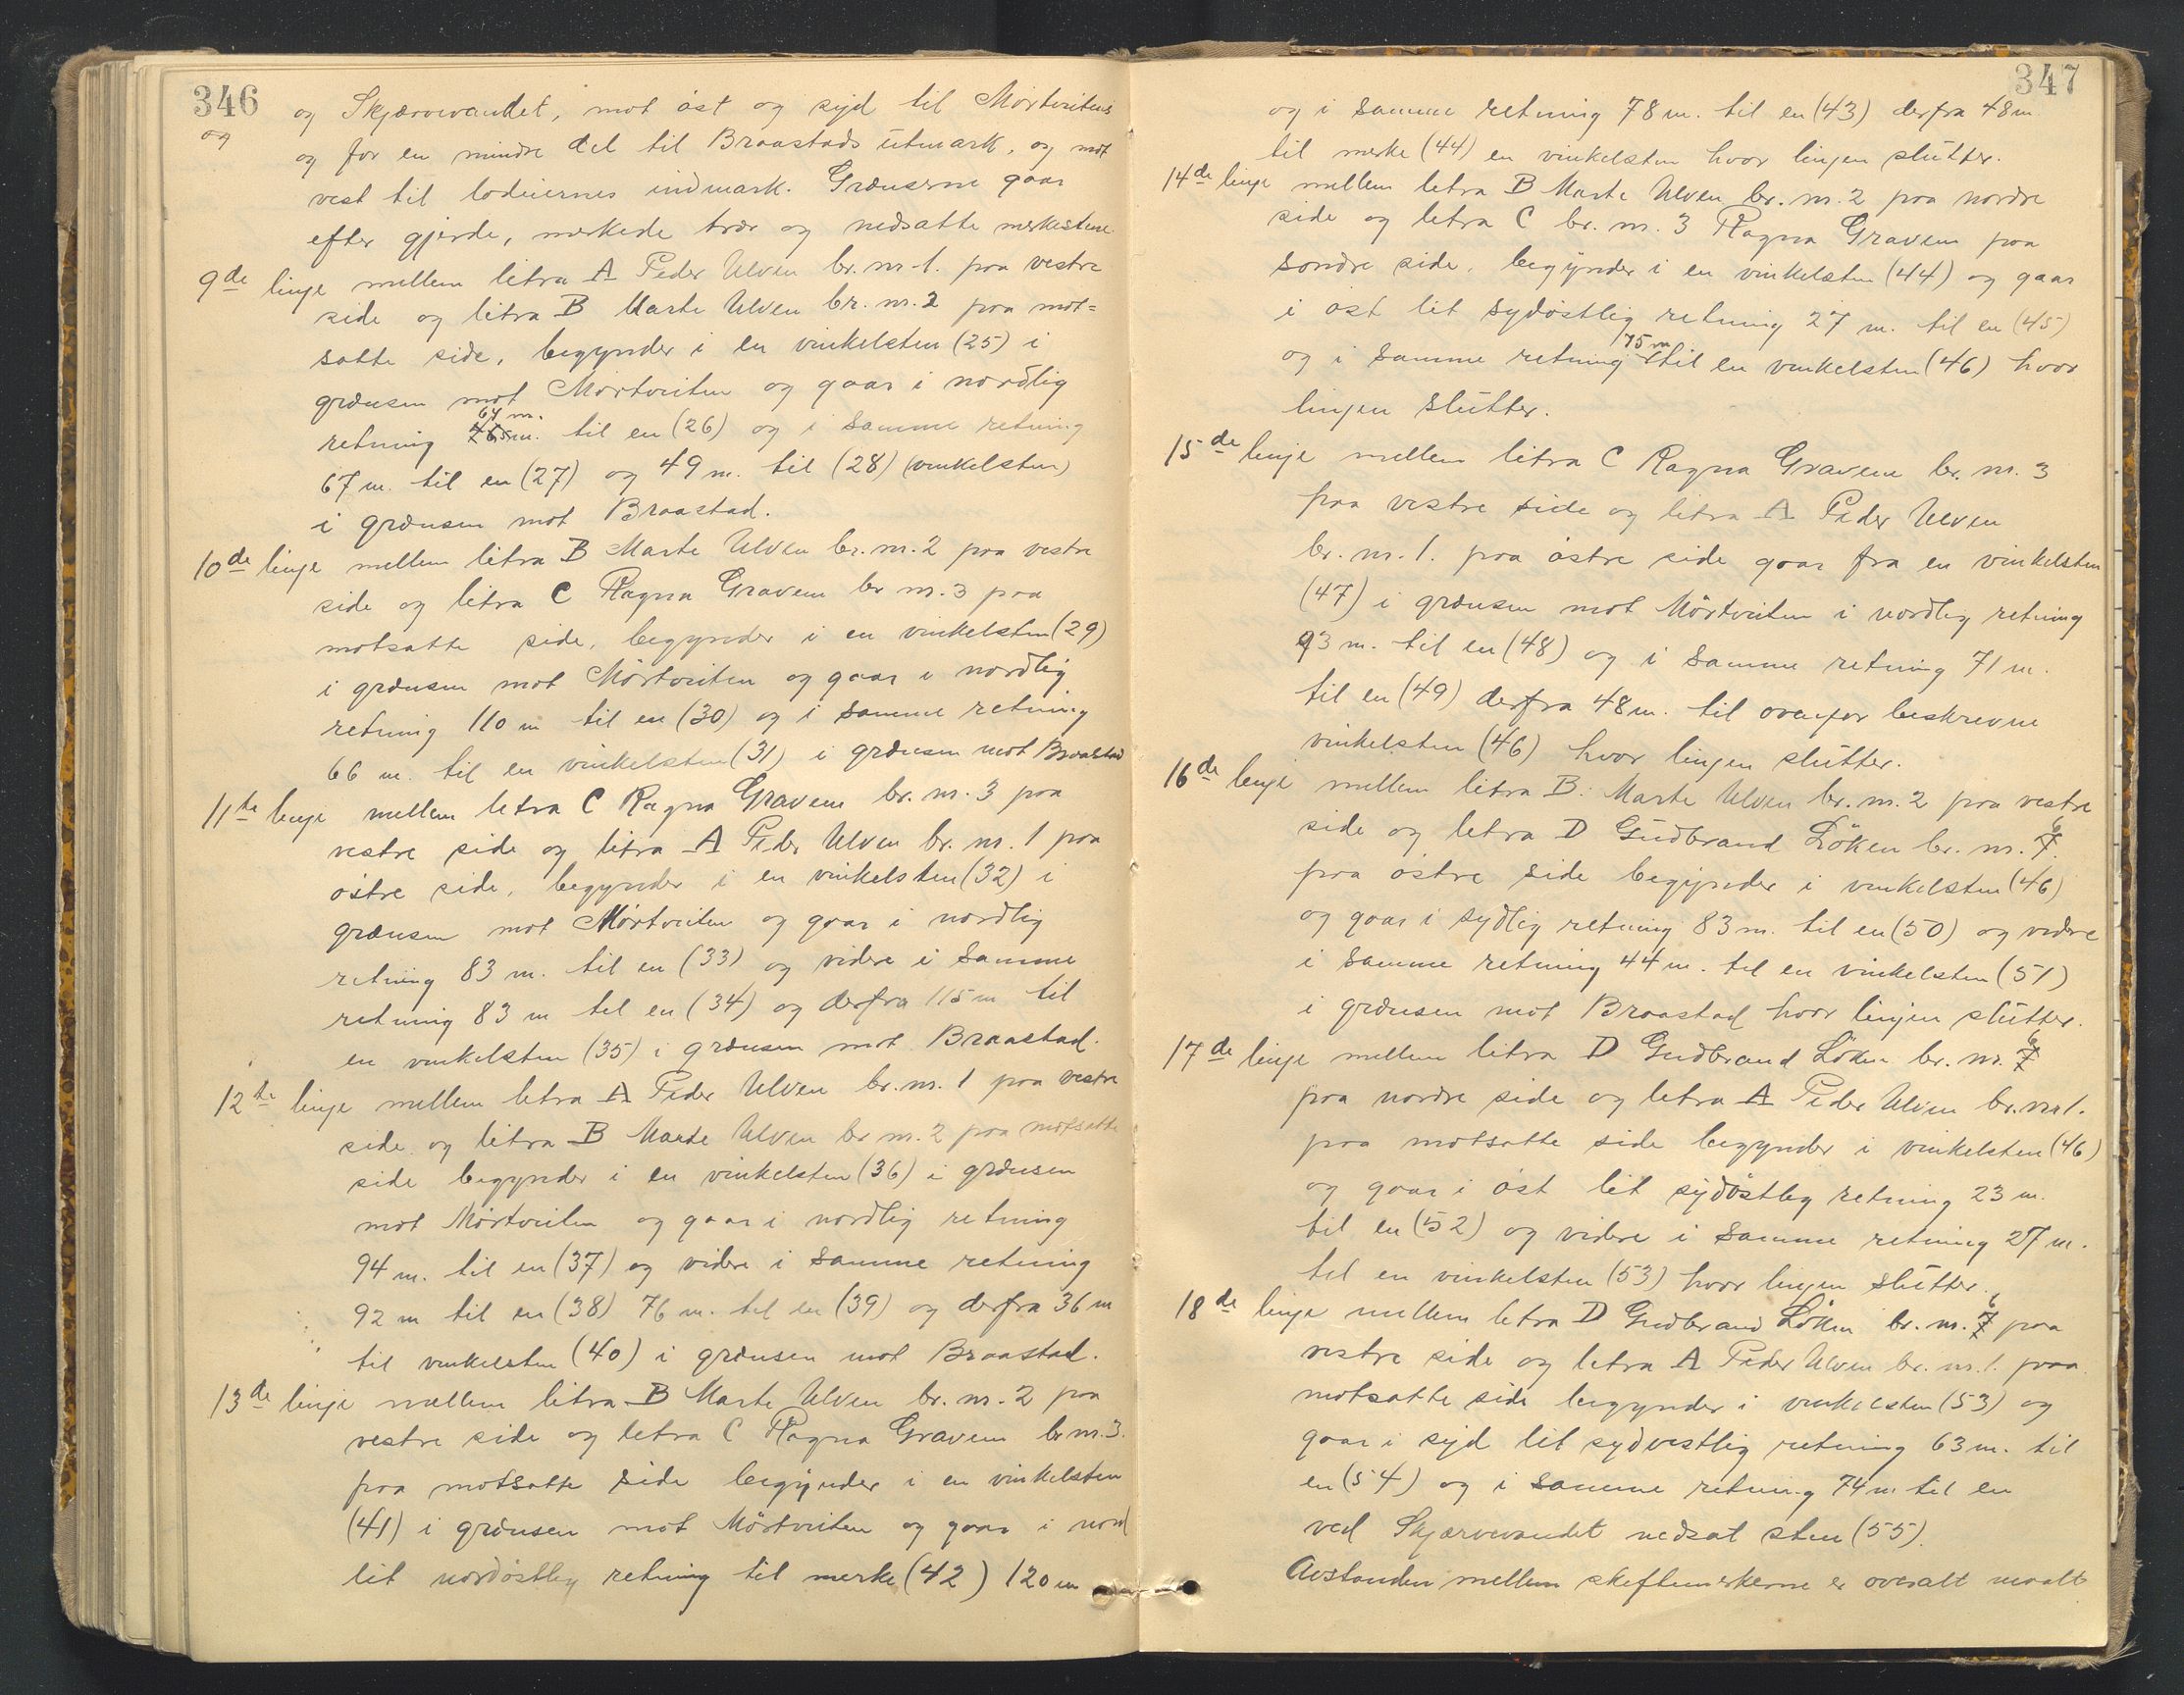 346
og
og Skjærvevandet, mot øst og syd til Mørtvitens
og for en mindre del til Braastads utmark, og mot
vest til lodeiernes indmark. Grænserne gaar
efter gjerde, merkede trær og nedsatte merkestene
9de linje mellem litra A Peder Ulven br. nr. 1. paa vestre
side og litra B Marte Ulven br. nr. 2 paa mot=
satte side, begynder i en vinkelsten (25) i
grænsen mot Mørtviten og gaar i nordlig
64 m.
retning til en (26) og i samme retning
67 m. til en (27) og 49 m. til (28) (vinkelsten)
i grænsen mot Braastad.
10de linje mellem litra B Marte Ulven br. nr. 2 paa vestre
side og litra C Ragna Gravem br nr. 3 paa
motsatte side, begynder i en vinkelsten (29)
i grænsen mot Mørtviten og gaar i nordlig
retning 110 m til en (30) og i samme retning
66 m. til en vinkelsten (31) i grænsen mot Braastad
11te linje mellem litra C Ragna Gravem br. nr. 3 paa
vestre side og litra A Peder Ulven br. nr. 1 paa
østre side, begynder i en vinkelsten (32) i
grænsen mot Mørtviten og gaar i nordlig
retning 83 m. til en (33) og videre i samme
retning 83 m til en (34) og derfra 115 m til
en vinkelsten (35) i grænsen mot Braastad.
12te linje mellem litra A Peder Ulven br. nr. 1 paa vestre
side og litra B Marte Ulven br nr. 2 paa motsatte
side begynder i en vinkelsten (36) i grænsen
mot Mørtviten og gaar i nordlig retning
94 m. til en (37) og videre i samme retning
92 m til en (38) 76 m. til en (39) og derfra 36 m
til vinkelsten (40) i grænsen mot Braastad.
13de linje mellem litra B Marte Ulven br. nr. 2 paa
vestre side og litra C Ragna Gravem br nr. 3.
paa motsatte side begynder i en vinkelsten
(41) i grænsen mot Mørtviten og gaar i nord
lit nordøstlig retning til merke (42) 120 m
347
og i samme retning 78 m. til en (43) derfra 48 m
til merke (44) en vinkelsten hvor linjen slutter.
14de linje mellem litra B Marte Ulven br. nr. 2 paa nordre
side og litra C br. nr. 3 Ragna Gravem paa
søndre side, begynder i en vinkelsten (44) og gaar
i øst lit sydøstlig retning 27 m. til en (45)
75 m
og i samme retning til en vinkelsten (46) hvor
linjen slutter.
15de linje mellem litra C Ragna Gravem br. nr. 3
paa vestre side og litra A Peder Ulven
br. nr. 1. paa østre side gaar fra en vinkelsten
(47) i grænsen mot Mørtviten i nordlig retning
93 m. til en (48) og i samme retning 71 m.
til en (49) derfra 48 m. til ovenfor beskrevne
vinkelsten (46) hvor linjen slutter.
16de linje mellem litra B. Marte Ulven br. nr. 2 paa vestre
side og litra D Gudbrand Løken br. nr. 6
paa østre side begynder i vinkelsten (46)
og gaar i sydlig retning 83 m. til en (50) og videre
i samme retning 44 m. til en vinkelsten (51)
i grænsen mot Braastad hvor linjen slutter.
17de linje mellem litra D Gudbrand Løken br. nr. 6
paa nordre side og litra A Peder Ulven br. nr 1.
paa motsatte side begynder i vinkelsten (46)
og gaar i øst lit sydøstlig retning 23 m.
til en (52) og videre i samme retning 27 m.
til en vinkelsten (53) hvor linjen slutter.
18de linje mellem litra D Gudbrand Løken br. nr. 6 paa
vestre side og litra A Peder Ulven br. nr. 1. paa
motsatte side begynder i vinkelsten (53) og
gaar i syd lit sydvestlig retning 63 m. til
en (54) og i samme retning 74 m til en
ved Skjærvevandet nedsat sten (55).
Avstanden mellem skiftemerkerne er overalt maalt